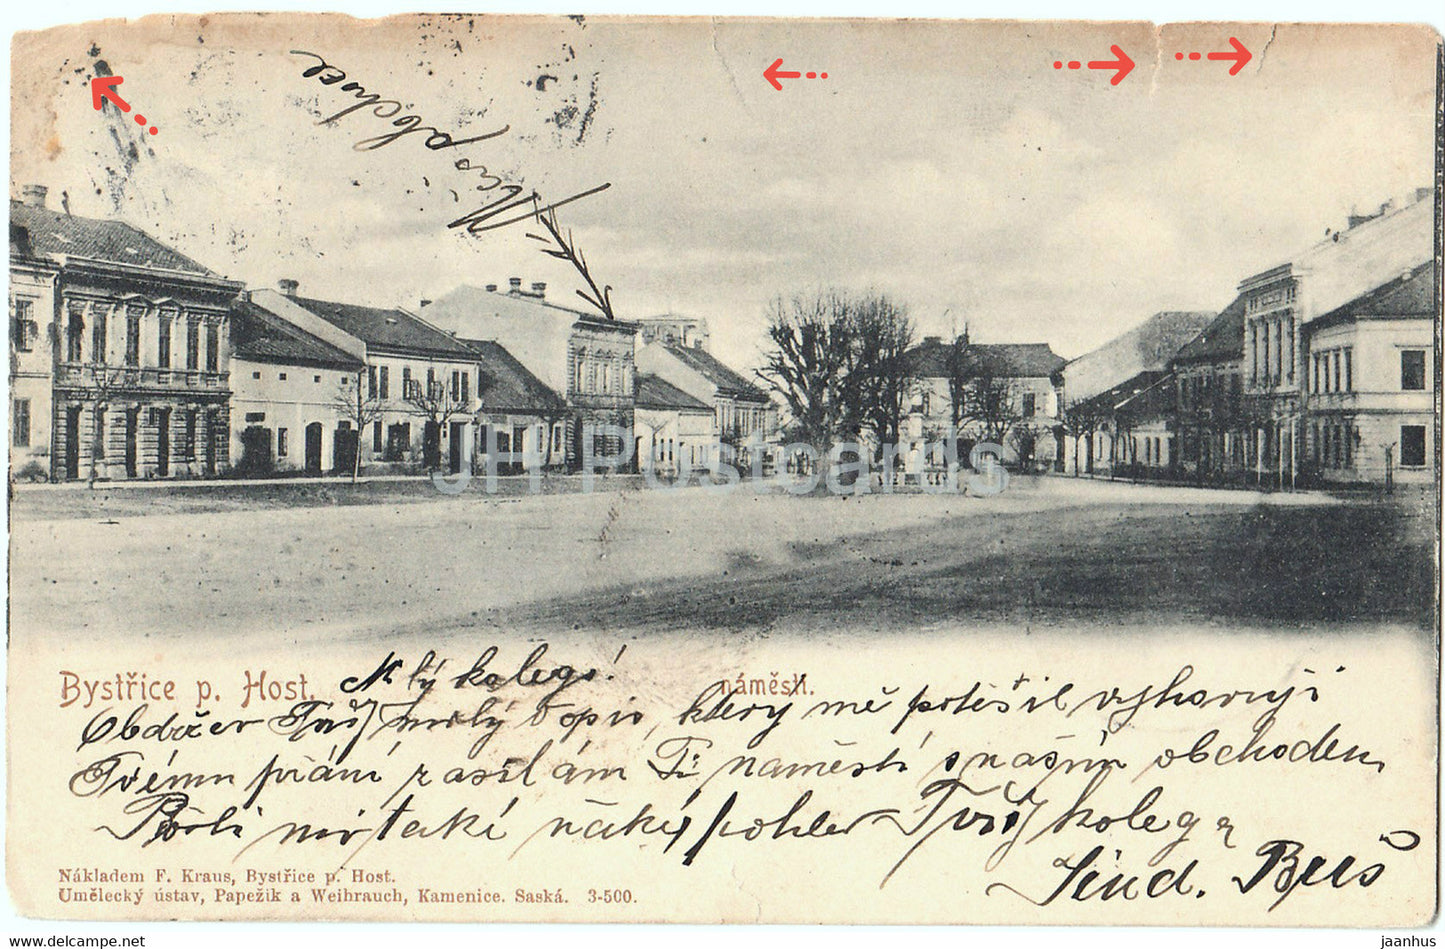 Náš obchod
JH Postcards
Bystřice p. Host. náměstí.
Milý kolego!
Obdržev Tvůj milý dopis, který mě potěšil vyhovuji
Tvému přání zasílám Ti náměstí s naším obchodem
Pošli mi také nějaký pohled Tvůj kolega
Jind. Bureš
Nákladem F. Kraus, Bystřice p. Host.
Umělecký ústav, Papežik a Weihrauch, Kamenice. Saská. 3-500.
delcampe.net
jaanhus